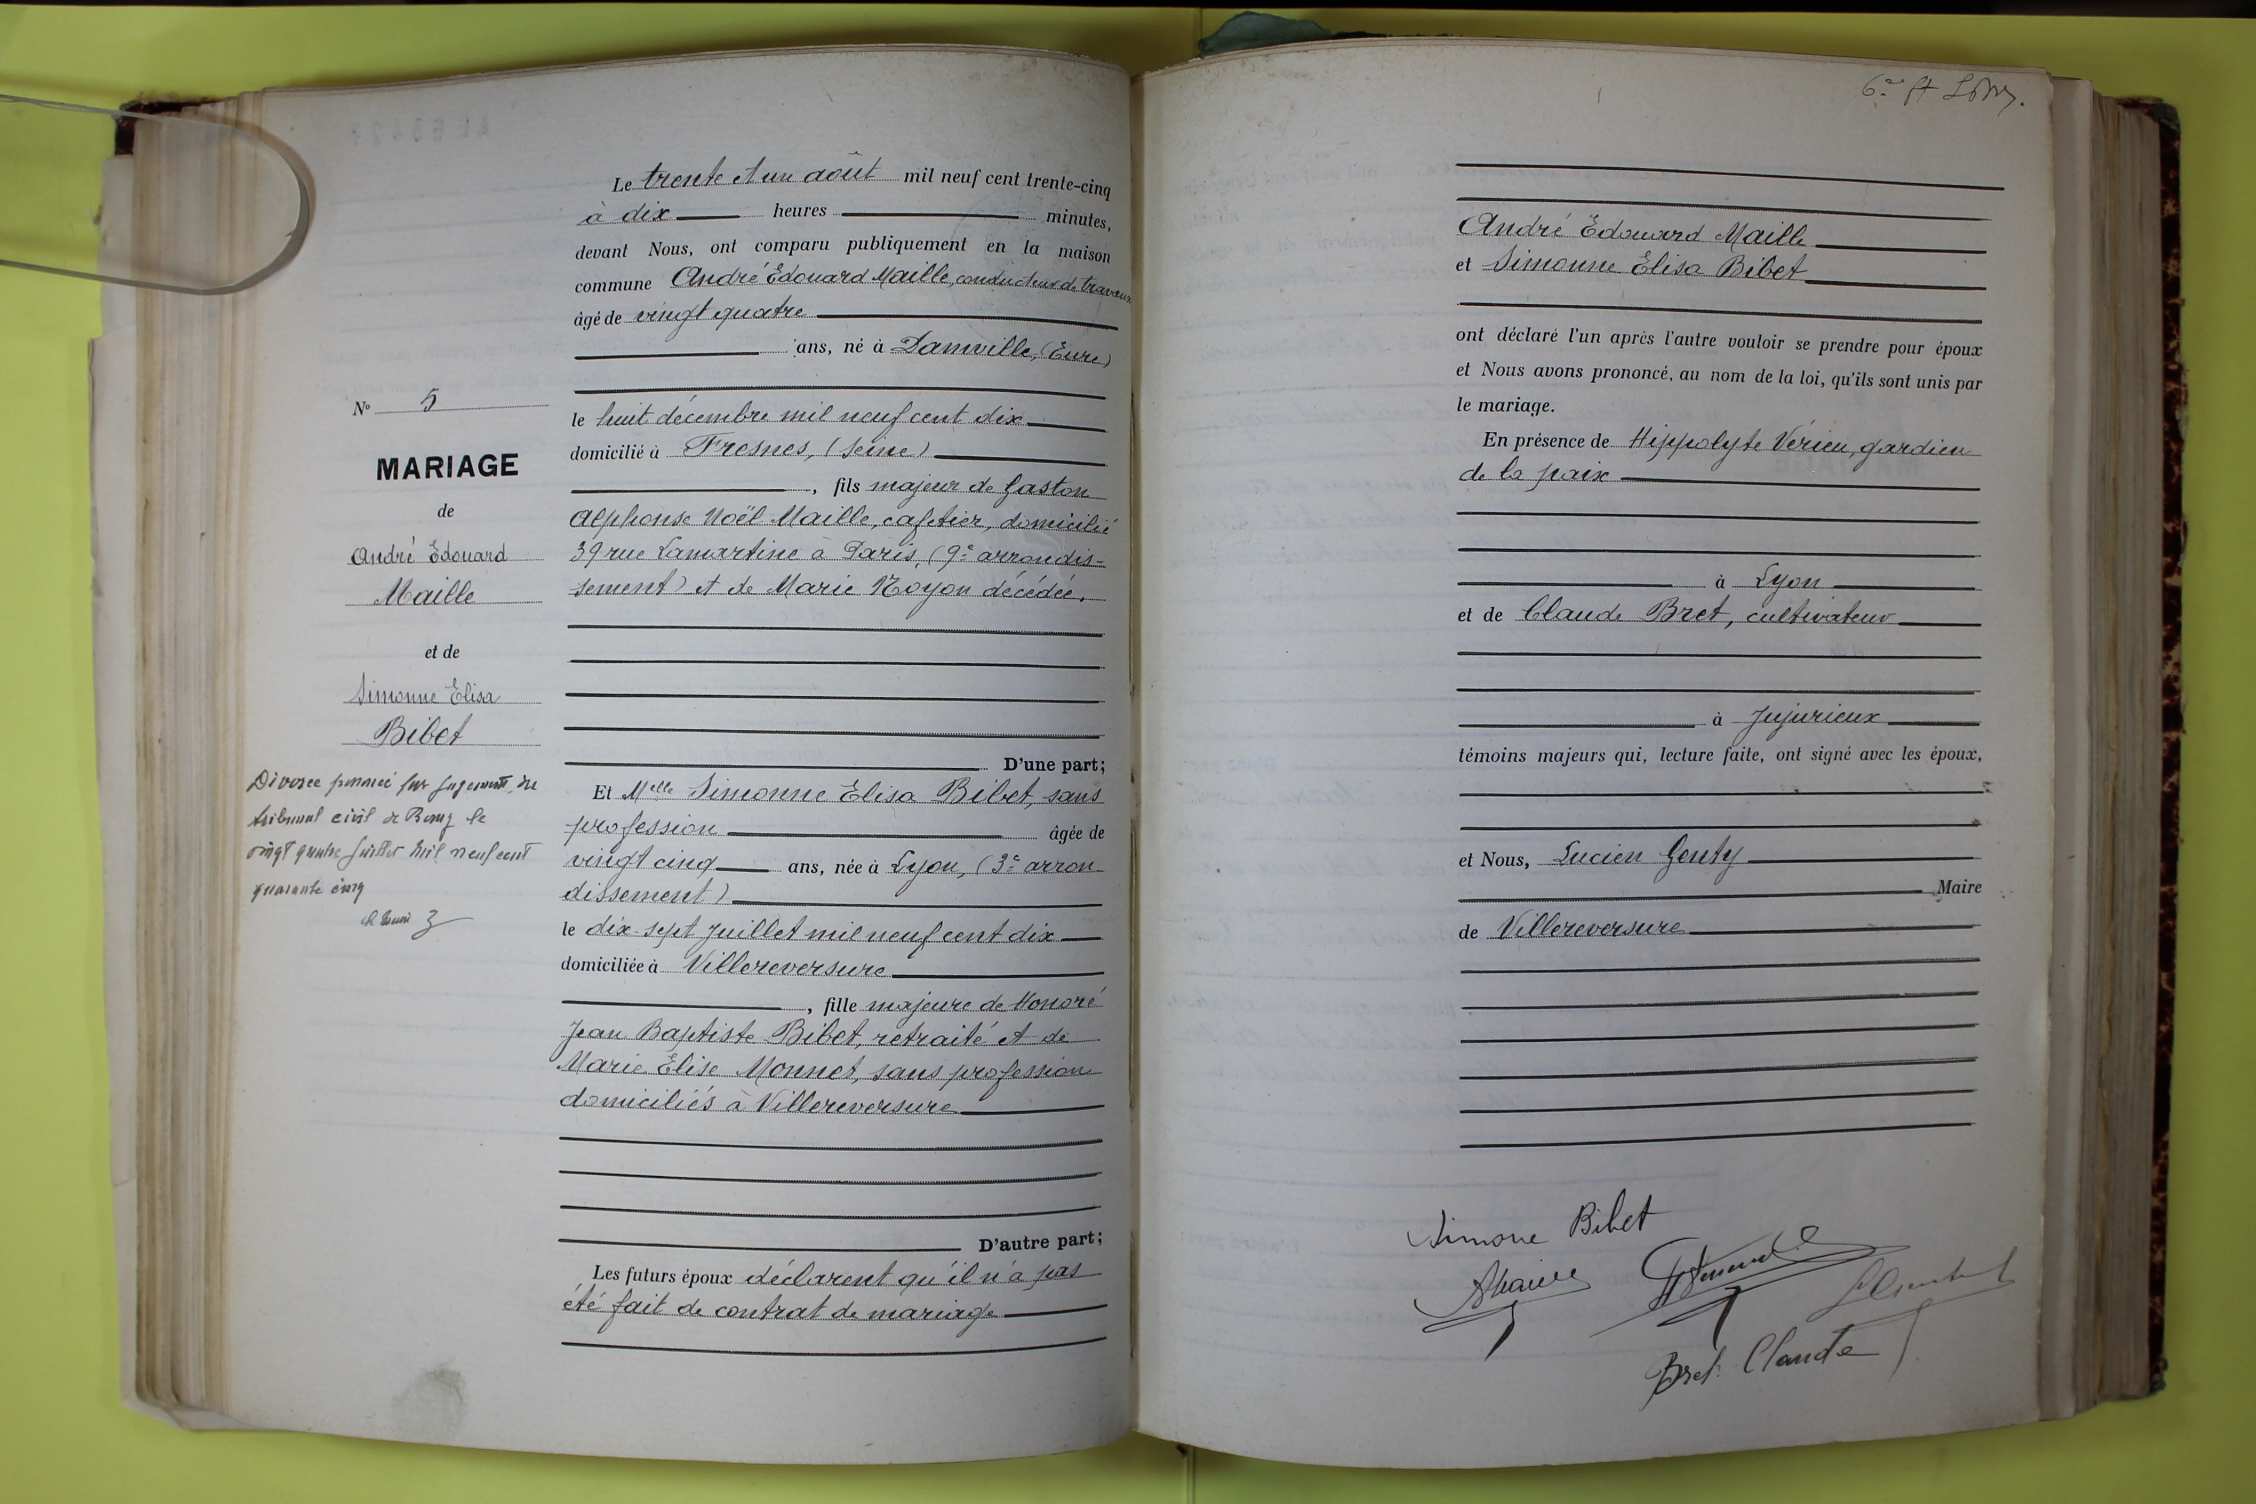 Le trente et un août mil neuf cent trente-cinq
à dix heures minutes,
devant Nous, ont comparu publiquement en la maison
commune André Edouard Maille, conducteur de travaux
âgé de vingt quatre
ans, né à Damville, (Eure)
No 5
le huit décembre mil neuf cent dix
domicilié à Fresnes, (Seine)
MARIAGE
, fils majeur de Gaston
de
Alphonse Noël Maille, cafetier, domicilié
André Edouard
39 rue Lamartine à Paris, (9e arrondis-
Maille
sement) et de Marie Noyon décédée.
et de
Simonne Elisa
Bibet
D'une part;
Divorce prononcé par jugement du
tribunal civil de Bourg le
vingt quatre juillet mil neuf cent
quarante cinq
Et Melle Simonne Elisa Bibet, sans
profession âgée de
vingt cinq ans, née à Lyon, (3e arron-
dissement)
le dix-sept juillet mil neuf cent dix
domiciliée à Villereversure
, fille majeure de Honoré
Jean Baptiste Bibet, retraité et de
Marie Elise Monnet, sans profession
domiciliés à Villereversure
D'autre part;
Les futurs époux déclarent qu'il n'a pas
été fait de contrat de mariage
André Edouard Maille
et Simonne Elisa Bibet
ont déclaré l'un après l'autre vouloir se prendre pour époux
et Nous avons prononcé, au nom de la loi, qu'ils sont unis par
le mariage.
En présence de Hippolyte Vérieu, gardien
de la paix
à Lyon
et de Claude Bret, cultivateur
à Jujurieux
témoins majeurs qui, lecture faite, ont signé avec les époux,
et Nous, Lucien Genty
Maire
de Villereversure
Simone Bibet
Bret Claude